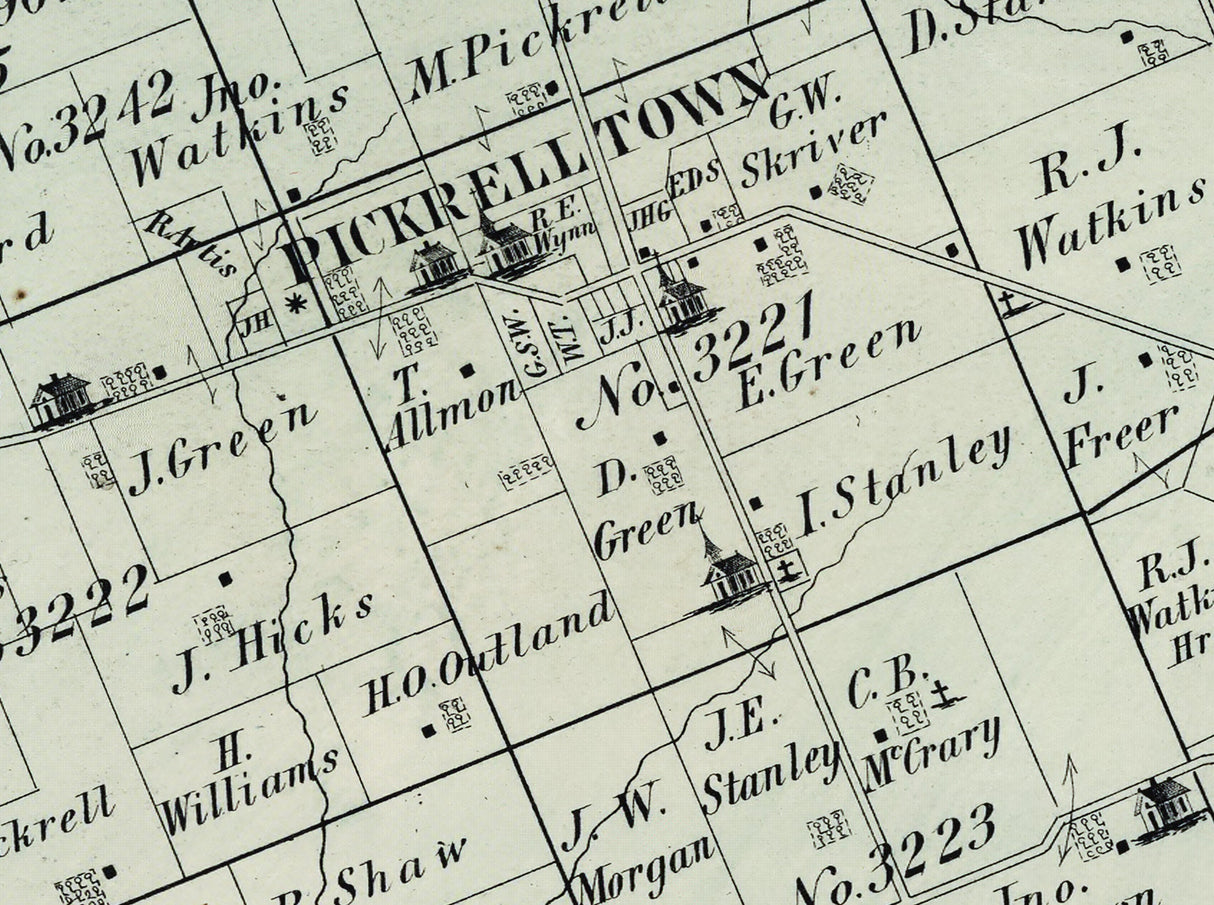 No. 3242
Jno.
Watkins
M. Pickrell
PICKRELL TOWN
G.W.
Skriver
R. J.
Watkins
R. Artis
R. E.
Wynn
JHG
EDS
JH
G.S.W.
W.T.
J.J.
No. 3221
E. Green
T.
Allmon
J. Green
D.
Green
I. Stanley
J.
Freer
3222
J. Hicks
H. O. Outland
H.
Williams
R.J.
C. B.
McCrary
J. E.
Stanley
J. W.
Morgan
Shaw
No. 3223
Jno.